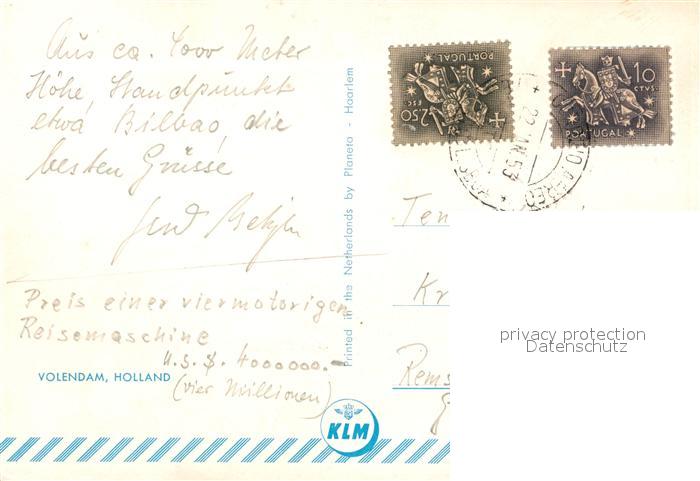 Aus ca. 4000 Meter
Höhe, Standpunkt
etwa Bilbao, die
besten Grüsse
Preis einer viermotorigen
Reisemaschine
U.S.$. 4000000.-
(vier Millionen)
VOLENDAM, HOLLAND
Printed in the Netherlands by Planeta - Haarlem
KLM
PORTUGAL
2$50
ESC.
10
CTVS.
PORTUGAL
Ten
Kr
Rems
privacy protection
Datenschutz